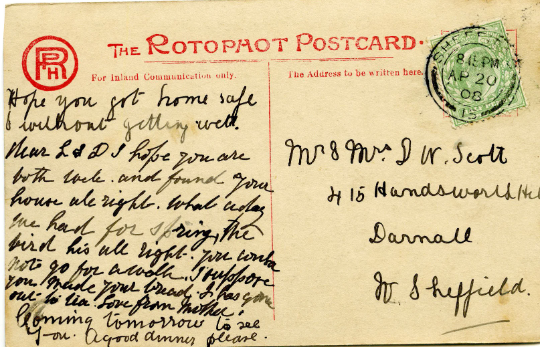 RPH
THE ROTOPHOT POSTCARD.
For Inland Communication only.
The Address to be written here.
SHEFF
8.15 PM
AP 20
08
15
Hope you got home safe
& without getting wet.
Dear L & D I hope you are
both well. and found your
house all right. What a day
we had for spring, The
bird his all right. you
not go for a walk. I suppose
you made your bread. L has gone
out to tea Love from Mother
Coming tomorrow to see
you. A good dinner please.
Mr & Mrs D W. Scott
415 Handsworth Hil
Darnall
Nr Sheffield.